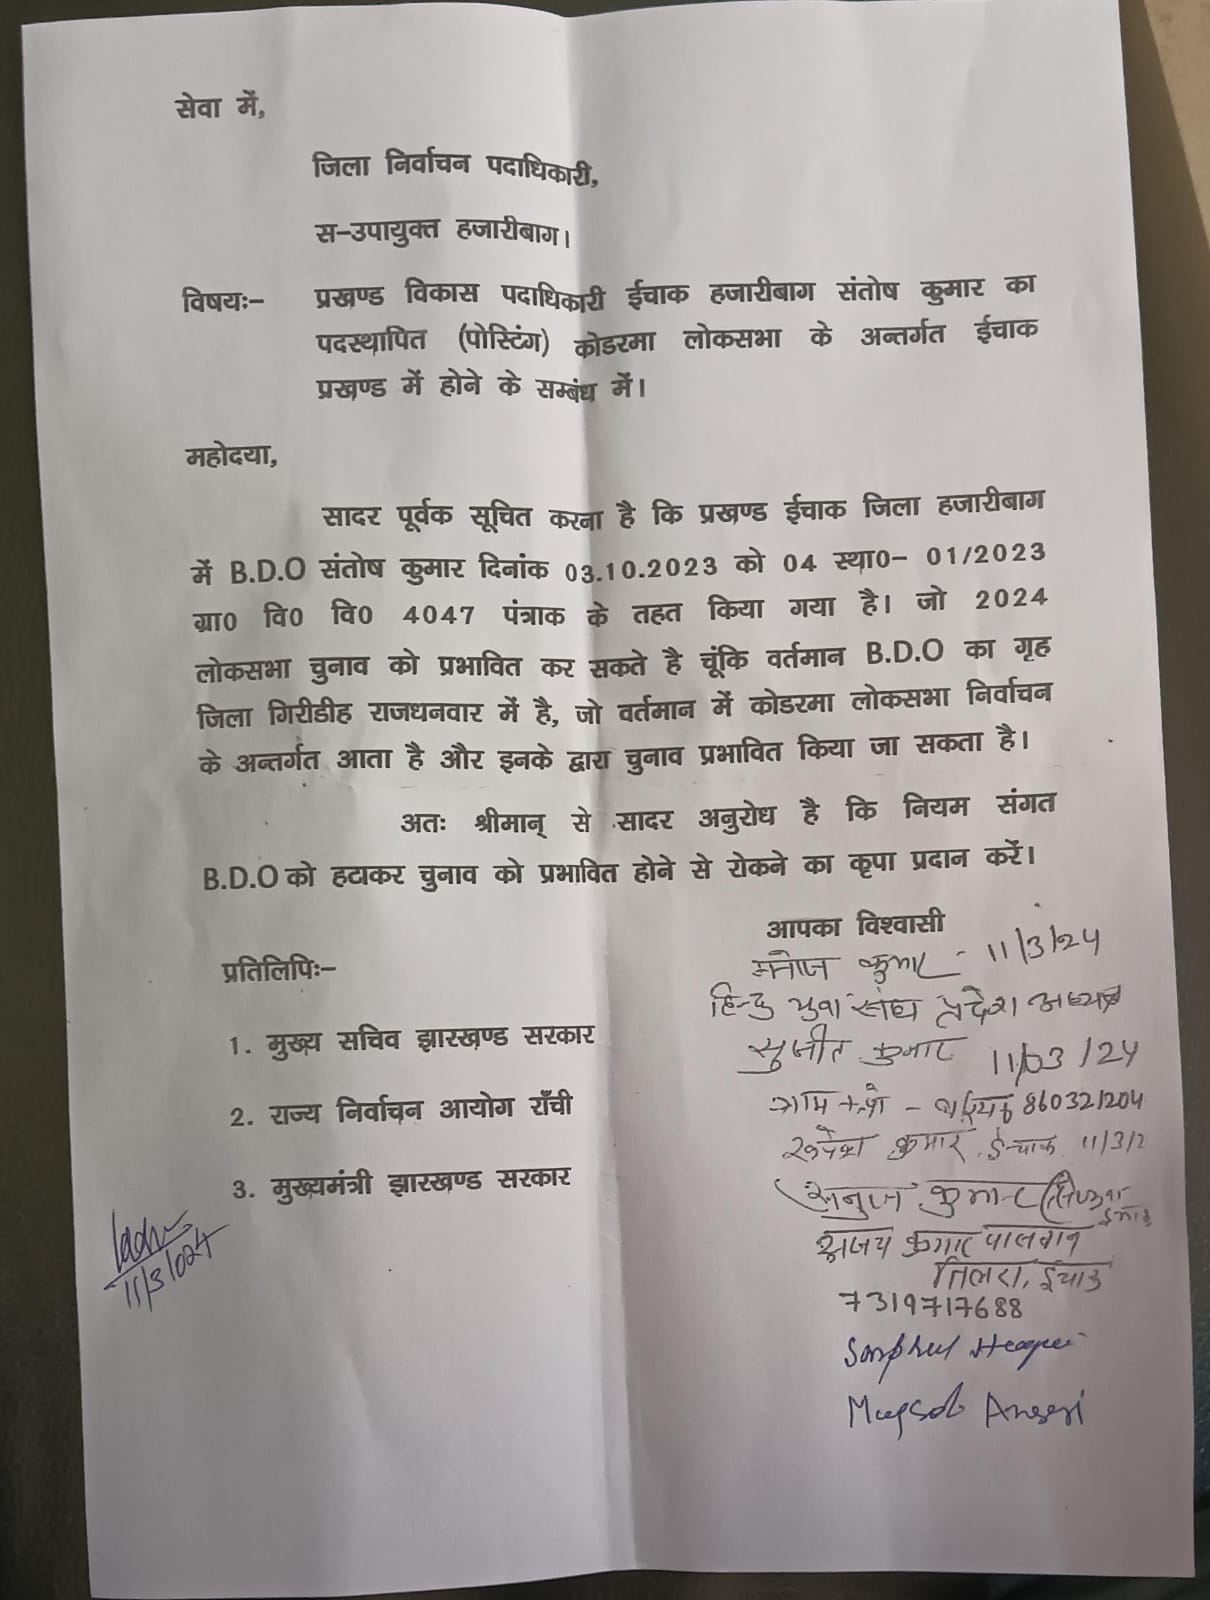 सेवा में,
जिला निर्वाचन पदाधिकारी,
स-उपायुक्त हजारीबाग।
विषयः- प्रखण्ड विकास पदाधिकारी ईचाक हजारीबाग संतोष कुमार का
पदस्थापित (पोस्टिंग) कोडरमा लोकसभा के अन्तर्गत ईचाक
प्रखण्ड में होने के सम्बंध में।
महोदया,
सादर पूर्वक सूचित करना है कि प्रखण्ड ईचाक जिला हजारीबाग
में B.D.O संतोष कुमार दिनांक 03.10.2023 को 04 स्था0- 01/2023
ग्रा0 वि0 वि0 4047 पंत्राक के तहत किया गया है। जो 2024
लोकसभा चुनाव को प्रभावित कर सकते है चूंकि वर्तमान B.D.O का गृह
जिला गिरीडीह राजधनवार में है, जो वर्तमान में कोडरमा लोकसभा निर्वाचन
के अन्तर्गत आता है और इनके द्वारा चुनाव प्रभावित किया जा सकता है।
अतः श्रीमान् से सादर अनुरोध है कि नियम संगत
B.D.O को हटाकर चुनाव को प्रभावित होने से रोकने का कृपा प्रदान करें।
आपका विश्वासी
मनोज कुमार - 11/3/24
हिन्दु युवा संघ प्रदेश अध्यक्ष
प्रतिलिपिः-
सुजीत कुमार 11/03/24
1. मुख्य सचिव झारखण्ड सरकार
ग्राम 860321204
2. राज्य निर्वाचन आयोग राँची
रूपेश कुमार, ईचाक 11/3/2
3. मुख्यमंत्री झारखण्ड सरकार
अनुज कुमार
11/3/024
अजय कुमार पासवान
तिलरा, ईचाक
7319717688
Ansari